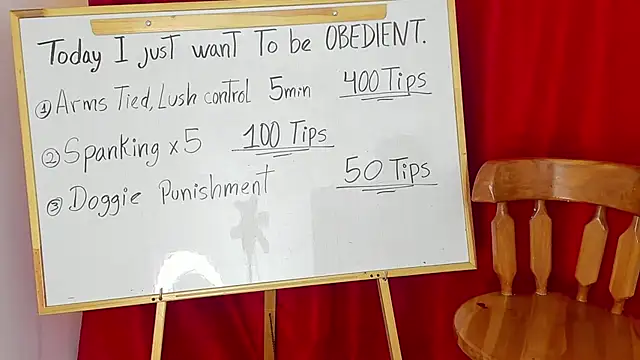 Today I just want To be OBEDIENT.
① Arms Tied, Lush control 5min 400 Tips
② Spanking x 5 100 Tips
③ Doggie Punishment 50 Tips